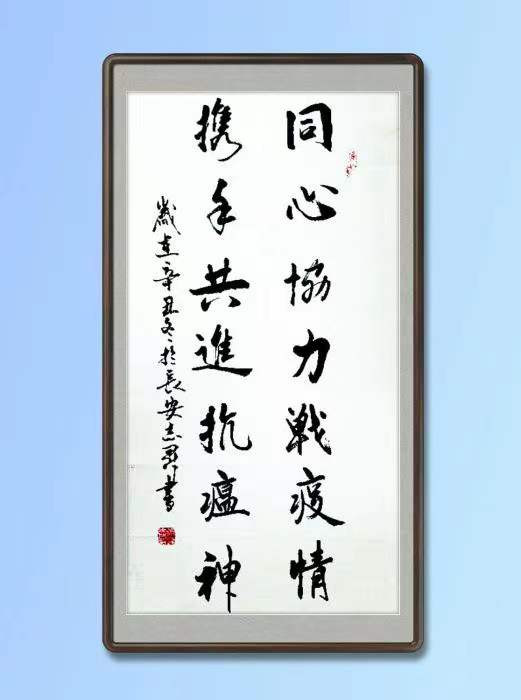 同心協力戰疫情
携手共進抗瘟神
歲在辛丑冬於長安志君書